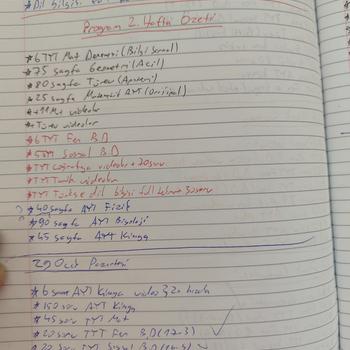 *Dil bilgisi
Program 2. Hafta Özeti
*6 TYT Mat Denemesi (Bilgi Sarmal)
*75 sayfa Geometri (Acil)
*80 sayfa Türev (Apotemi)
*25 sayfa Matematik AYT (Orijinal)
*Mat videolar
*Türev videolar
*6 TYT Fen B.D
*5 TYT Sosyal B.D
*TYT Coğrafya videolar + 20 soru
*TYT Tarih videolar
*TYT Türkçe dil bilgisi full tekrar
*40 sayfa AYT Fizik
*90 sayfa AYT Biyoloji
*45 sayfa AYT Kimya
29 Ocak Pazartesi
*6 AYT Kimya video
*150 soru AYT Kimya
*45 soru TYT Mat
*20 soru TYT Fen B.D (17-3)
*20 soru TYT Sosyal B.D